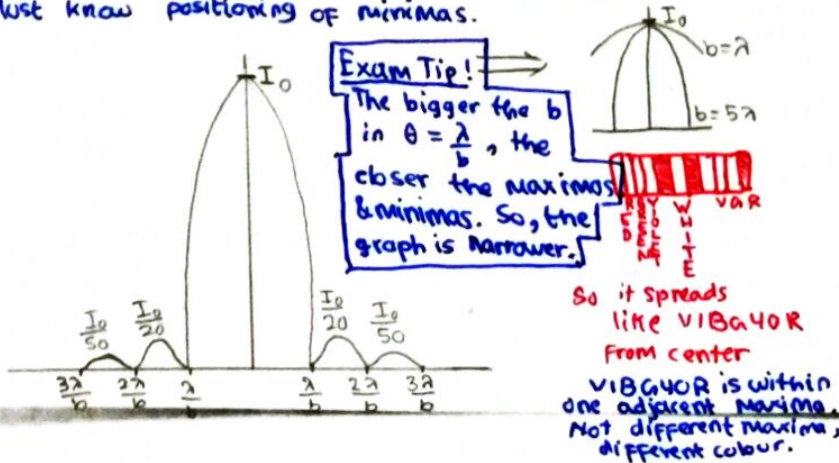 Must know positioning of minimas.
I₀
I₀
b=λ
b=5λ
Exam Tip!
The bigger the b
in θ = λ/b, the
closer the maximas
& minimas. So, the
graph is narrower.
RED GREEN VIOLET WHITE V G R
So it spreads
like VIBGYOR
from center
VIBGYOR is within
one adjacent maxima.
Not different maxima,
different colour.
I₀/50 I₀/20 I₀/20 I₀/50
3λ/b 2λ/b λ/b λ/b 2λ/b 3λ/b